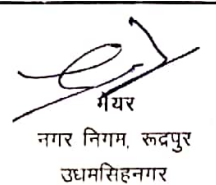 मेयर
नगर निगम, रूद्रपुर
उधमसिहनगर